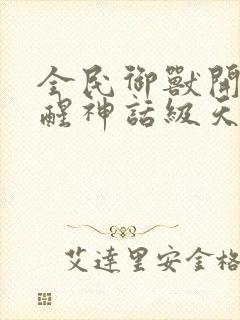 全民御獸開
醒神話級天
艾達里安金格